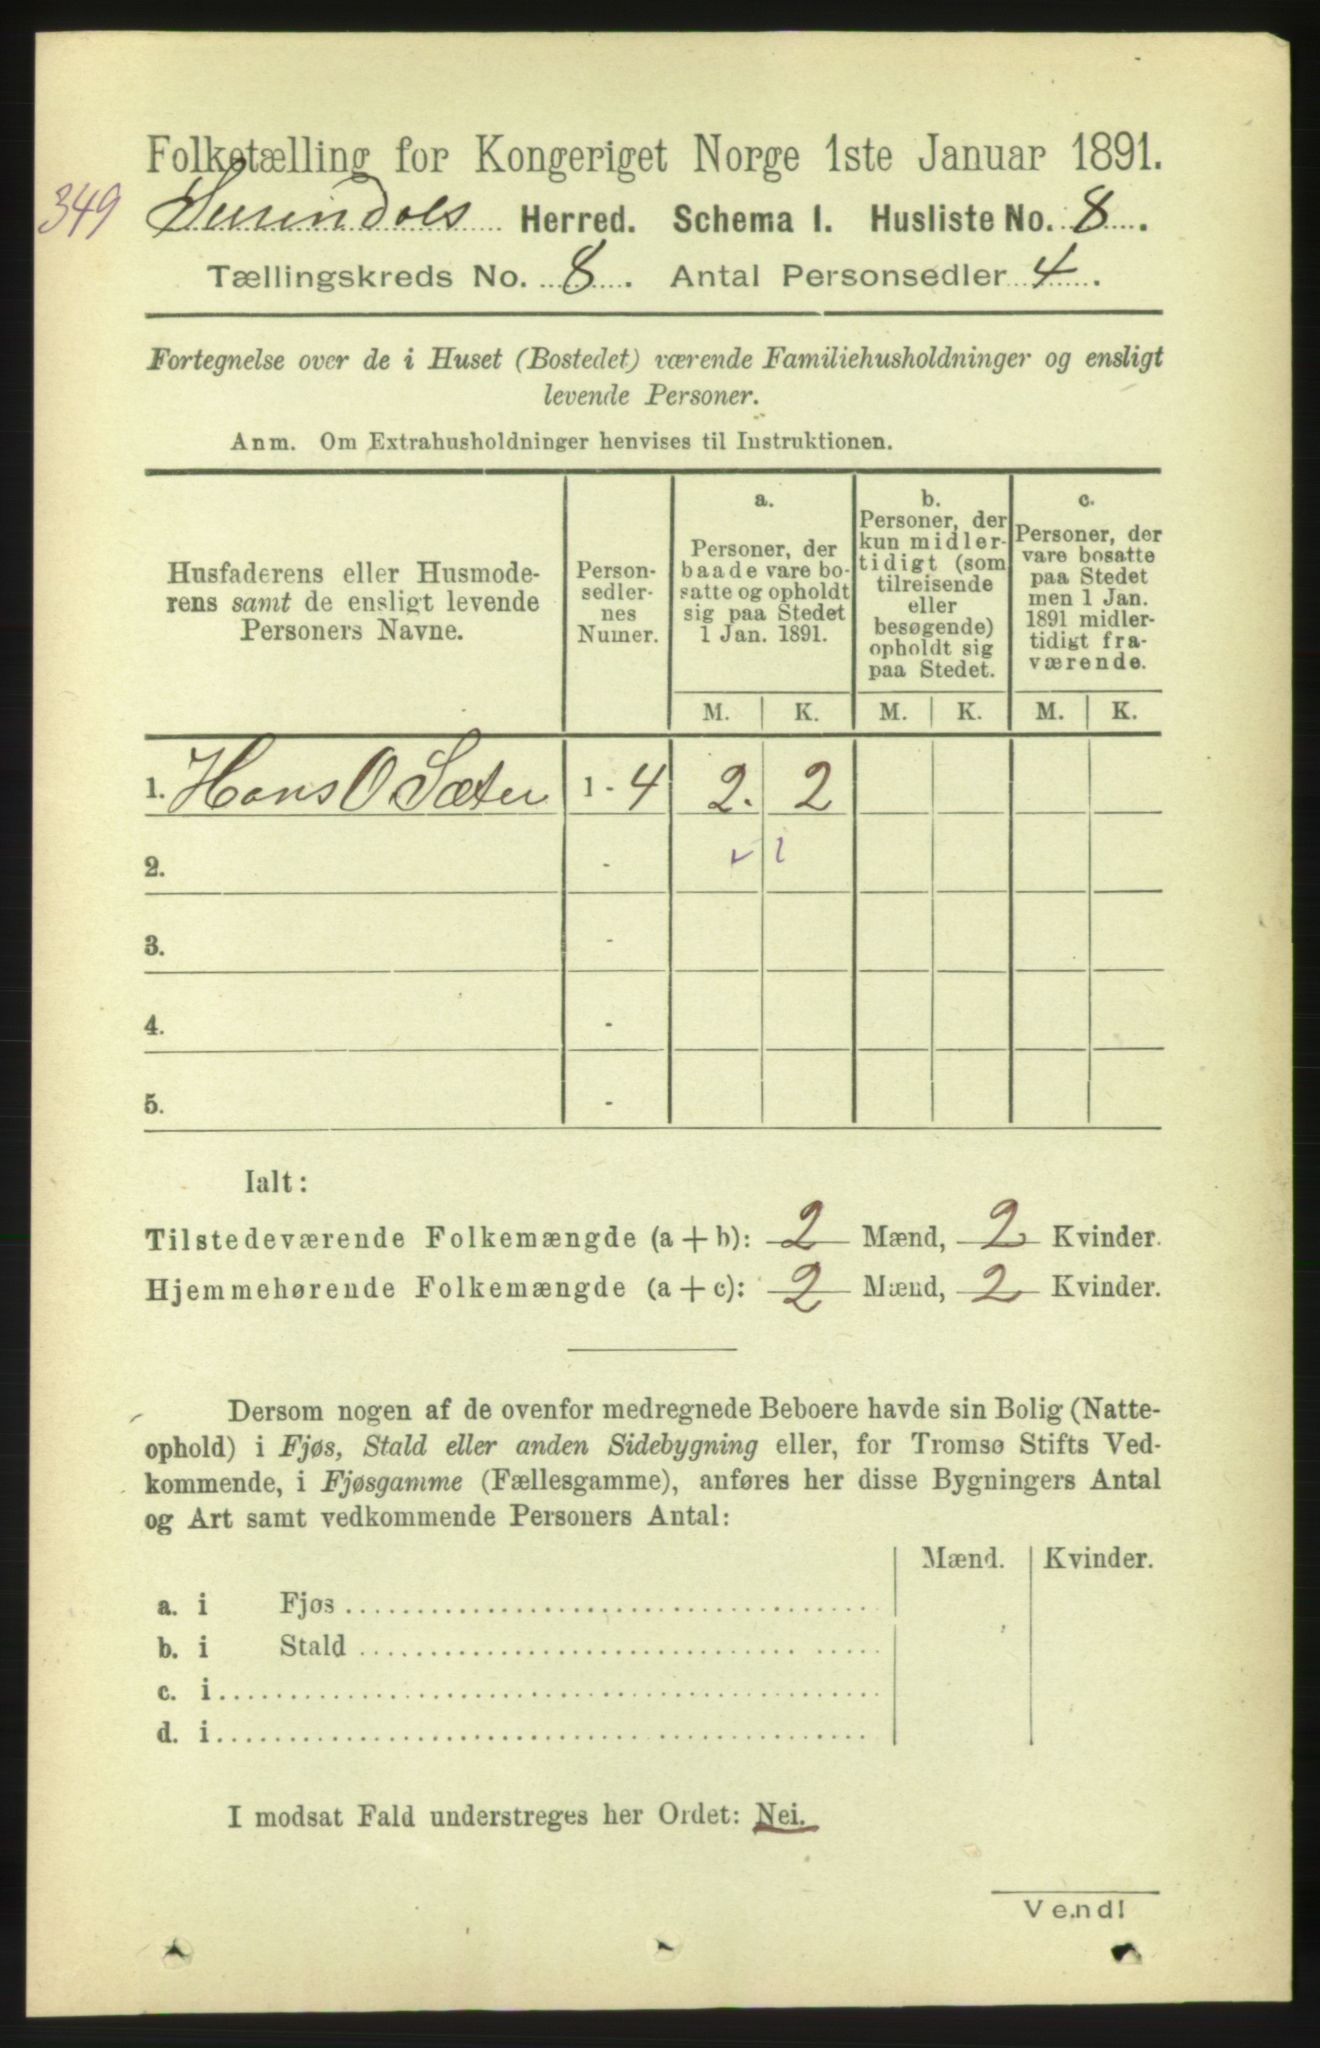 Folketælling for Kongeriget Norge 1ste Januar 1891.
349 Surendals Herred. Schema I. Husliste No. 8.
Tællingskreds No. 8. Antal Personsedler 4.
Fortegnelse over de i Huset (Bostedet) værende Familiehusholdninger og ensligt
levende Personer.
Anm. Om Extrahusholdninger henvises til Instruktionen.
Husfaderens eller Husmode-
rens samt de ensligt levende
Personers Navne.
Person-
sedler-
nes
Numer.
a.
Personer, der
baade vare bo-
satte og opholdt
sig paa Stedet
1 Jan. 1891.
b.
Personer, der
kun midler-
tidigt (som
tilreisende
eller
besøgende)
opholdt sig
paa Stedet.
c.
Personer, der
vare bosatte
paa Stedet
men 1 Jan.
1891 midler-
tidigt fra-
værende.
M. K. M. K. M. K.
1. Hans O Sæter 1 - 4 2. 2
2. -
3. -
4. -
5. -
Ialt:
Tilstedeværende Folkemængde (a + b): 2 Mænd, 2 Kvinder.
Hjemmehørende Folkemængde (a + c): 2 Mænd, 2 Kvinder.
Dersom nogen af de ovenfor medregnede Beboere havde sin Bolig (Natte-
ophold) i Fjøs, Stald eller anden Sidebygning eller, for Tromsø Stifts Ved-
kommende, i Fjøsgamme (Fællesgamme), anføres her disse Bygningers Antal
og Art samt vedkommende Personers Antal:
Mænd. Kvinder.
a. i Fjøs
b. i Stald
c. i
d. i
I modsat Fald understreges her Ordet: Nei.
Vend!